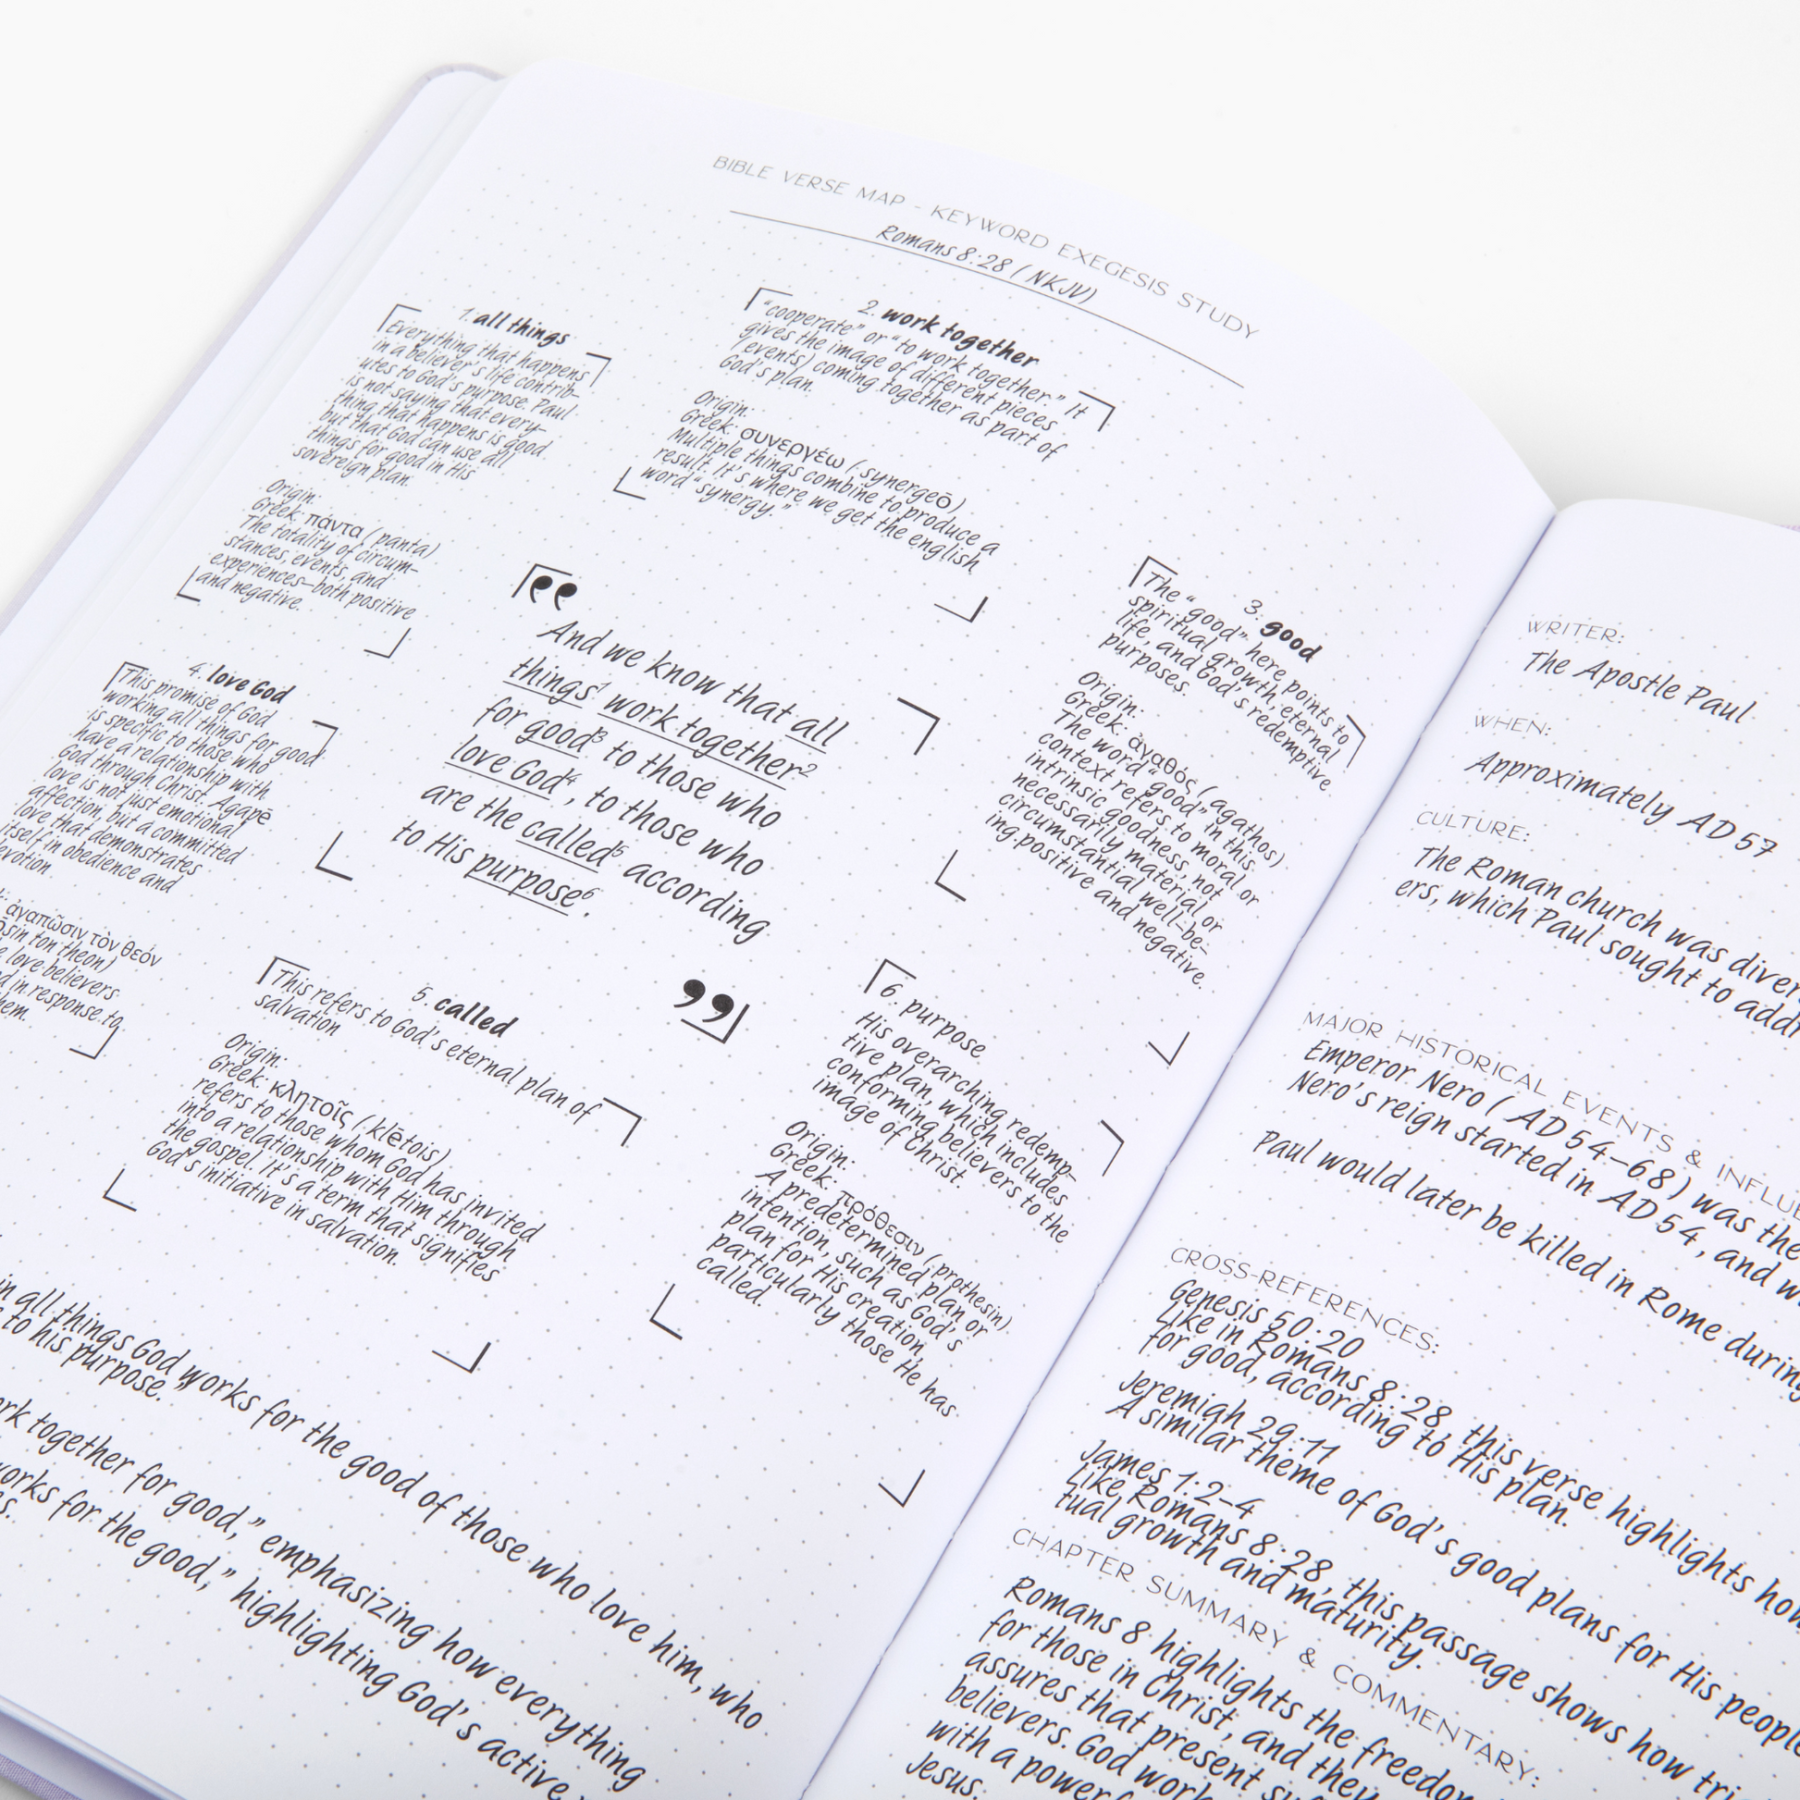 BIBLE VERSE MAP - KEYWORD EXEGESIS STUDY
Romans 8:28 (NKJV)
1. all things
Everything that happens
in a believer's life contrib-
utes to God's purpose. Paul
is not saying that every-
thing that happens is good
but that God can use all
things for good in His
sovereign plan.
Origin:
Greek: πάντα (panta)
The totality of circum-
stances, events, and
experiences—both positive
and negative.
2. work together
"cooperate" or "to work together." It
gives the image of different pieces
(events) coming together as part of
God's plan.
Origin:
Greek: συνεργέω (synergeō)
Multiple things combine to produce a
result. It's where we get the english
word "synergy."
3. good
The "good" here points to
spiritual growth, eternal
life, and God's redemptive
purposes.
Origin:
Greek: ἀγαθός (agathos)
The word "good" in this
context refers to moral or
intrinsic goodness, not
necessarily material or
circumstantial well-be-
ing.positive and negative.
“
And we know that all
things¹ work together²
for good³ to those who
love God⁴, to those who
are the called⁵ according
to His purpose⁶.
”
4. love God
This promise of God
working all things for good
is specific to those who
have a relationship with
God through Christ. Agapē
love is not just emotional
affection, but a committed
love that demonstrates
itself in obedience and
ἀγαπῶσιν τὸν θεόν
ton theon)
love believers
in response to
them.
5. called
This refers to God's eternal plan of
salvation
Origin:
Greek: κλητοῖς (klētois)
refers to those whom God has invited
into a relationship with Him through
the gospel. It's a term that signifies
God's initiative in salvation.
6. purpose
His overarching redemp-
tive plan, which includes
conforming believers to the
image of Christ.
Origin:
Greek: πρόθεσιν (prothesin)
A predetermined plan or
intention, such as God's
plan for His creation,
particularly those He has
called.
in all things God works for the good of those who love him, who
to his purpose."
together for good," emphasizing how everything
works for the good," highlighting God's active
WRITER:
The Apostle Paul
WHEN:
Approximately AD 57
CULTURE:
The Roman church was
ers, which Paul sought to
MAJOR HISTORICAL EVENTS &
Emperor Nero (AD 54–68) was the
Nero's reign started in AD 54, and
Paul would later be killed in Rome during
CROSS-REFERENCES:
Genesis 50:20
Like in Romans 8:28, this verse highlights how
for good, according to His plan.
Jeremiah 29:11
A similar theme of God's good plans for His people
James 1:2-4
Like Romans 8:28, this passage shows how
tual growth and maturity.
CHAPTER SUMMARY & COMMENTARY:
Romans 8 highlights the freedom
for those in Christ, and
assures that present
believers. God
with a
Jesus.